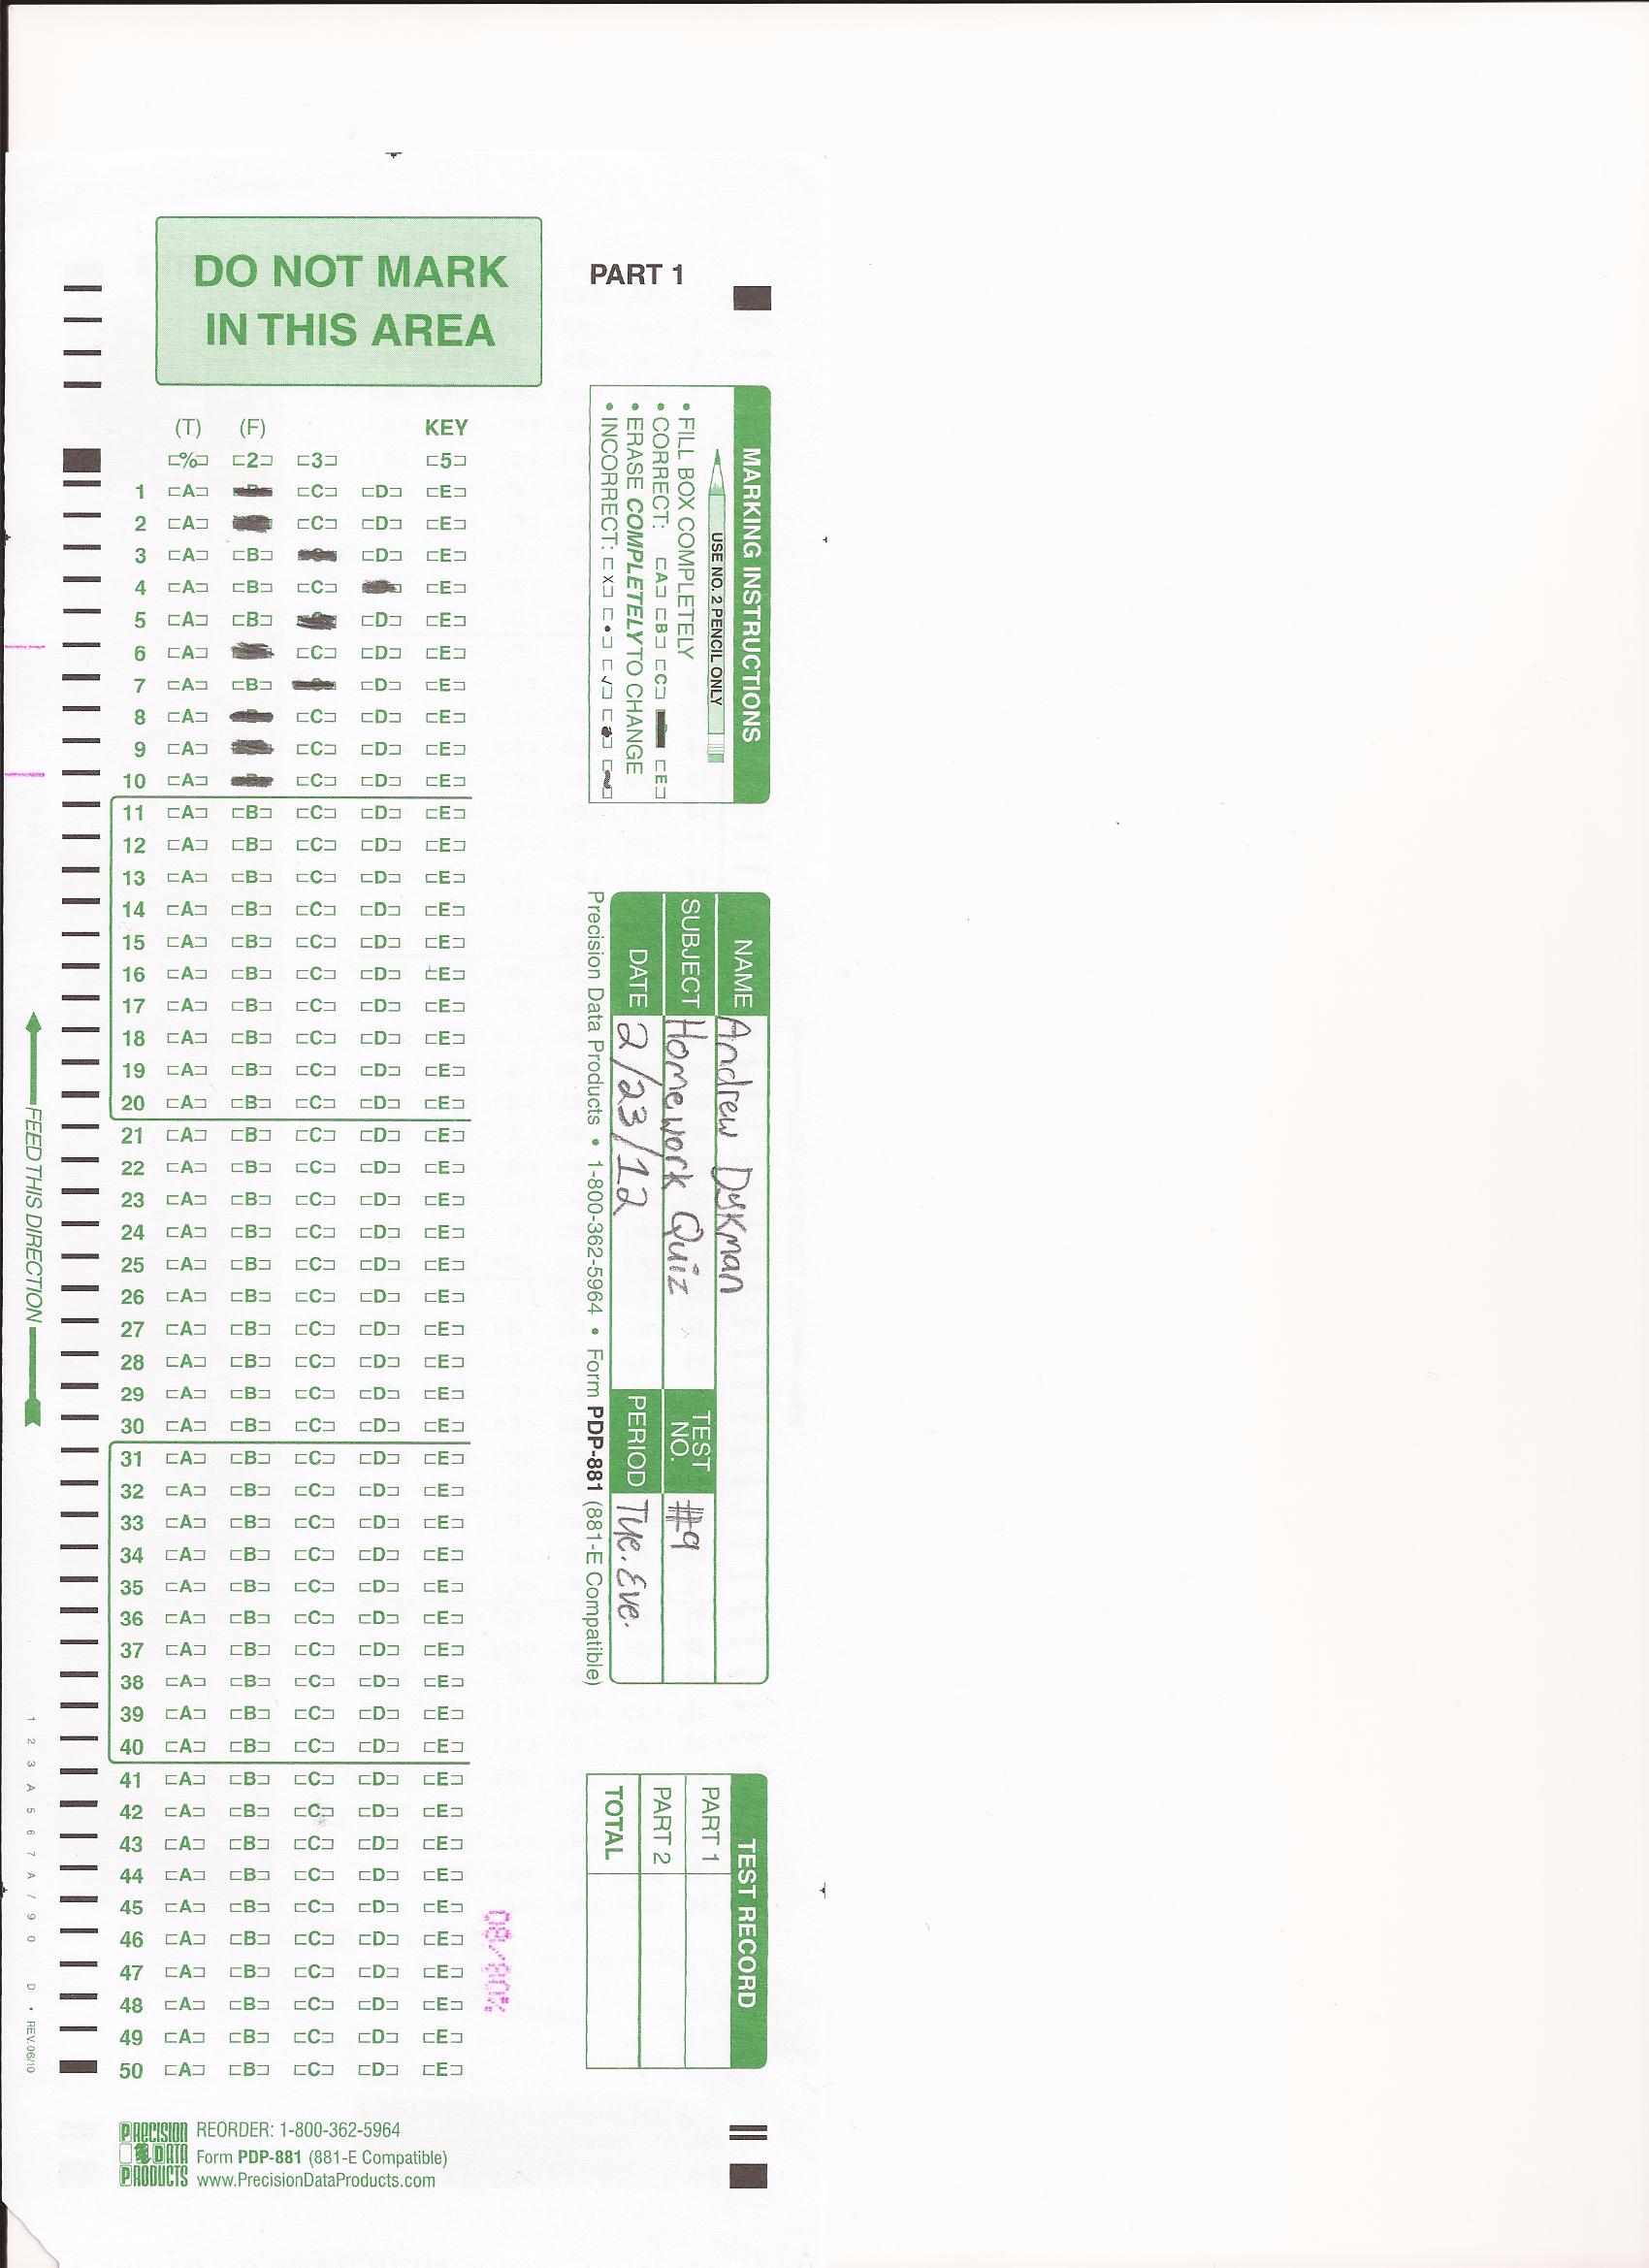 DO NOT MARK
IN THIS AREA
PART 1
(T) (F) KEY
% 2 3 5
1 A C D E
2 A C D E
3 A B D E
4 A B C E
5 A B D E
6 A C D E
7 A B D E
8 A C D E
9 A C D E
10 A C D E
11 A B C D E
12 A B C D E
13 A B C D E
14 A B C D E
15 A B C D E
16 A B C D E
17 A B C D E
18 A B C D E
19 A B C D E
20 A B C D E
21 A B C D E
22 A B C D E
23 A B C D E
24 A B C D E
25 A B C D E
26 A B C D E
27 A B C D E
28 A B C D E
29 A B C D E
30 A B C D E
31 A B C D E
32 A B C D E
33 A B C D E
34 A B C D E
35 A B C D E
36 A B C D E
37 A B C D E
38 A B C D E
39 A B C D E
40 A B C D E
41 A B C D E
42 A B C D E
43 A B C D E
44 A B C D E
45 A B C D E
46 A B C D E
47 A B C D E
48 A B C D E
49 A B C D E
50 A B C D E
MARKING INSTRUCTIONS
USE NO. 2 PENCIL ONLY
• FILL BOX COMPLETELY
• CORRECT: A B C E
• ERASE COMPLETELY TO CHANGE
• INCORRECT:
NAME Andrew Dykman
SUBJECT Homework Quiz TEST NO. #9
DATE 2/23/12 PERIOD Tue. Eve.
Precision Data Products • 1-800-362-5964 • Form PDP-881 (881-E Compatible)
TEST RECORD
PART 1
PART 2
TOTAL
FEED THIS DIRECTION
1 2 3 A 5 6 7 A / 9 0 D • REV.06/10
PRECISION DATA PRODUCTS
REORDER: 1-800-362-5964
Form PDP-881 (881-E Compatible)
www.PrecisionDataProducts.com